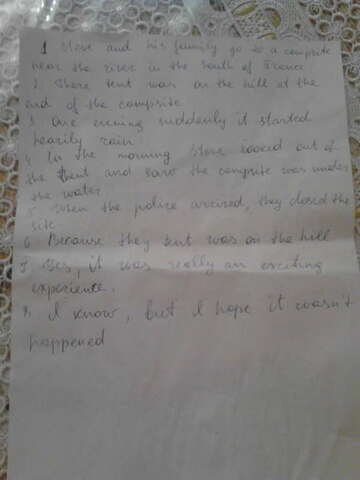 1 Steve and his family go to a campsite
near the river in the South of France
2. There tent was on the hill at the
end of the campsite
3 One evening suddenly it started
heavily rain
4 In the morning Steve looked out of
the tent and saw the campsite was under
the water
5. When the police arrived, they closed the
site
6 Because they tent was on the hill
7 Yes, it was really an exciting
experience.
8. I know, but I hope it wasn't
happened